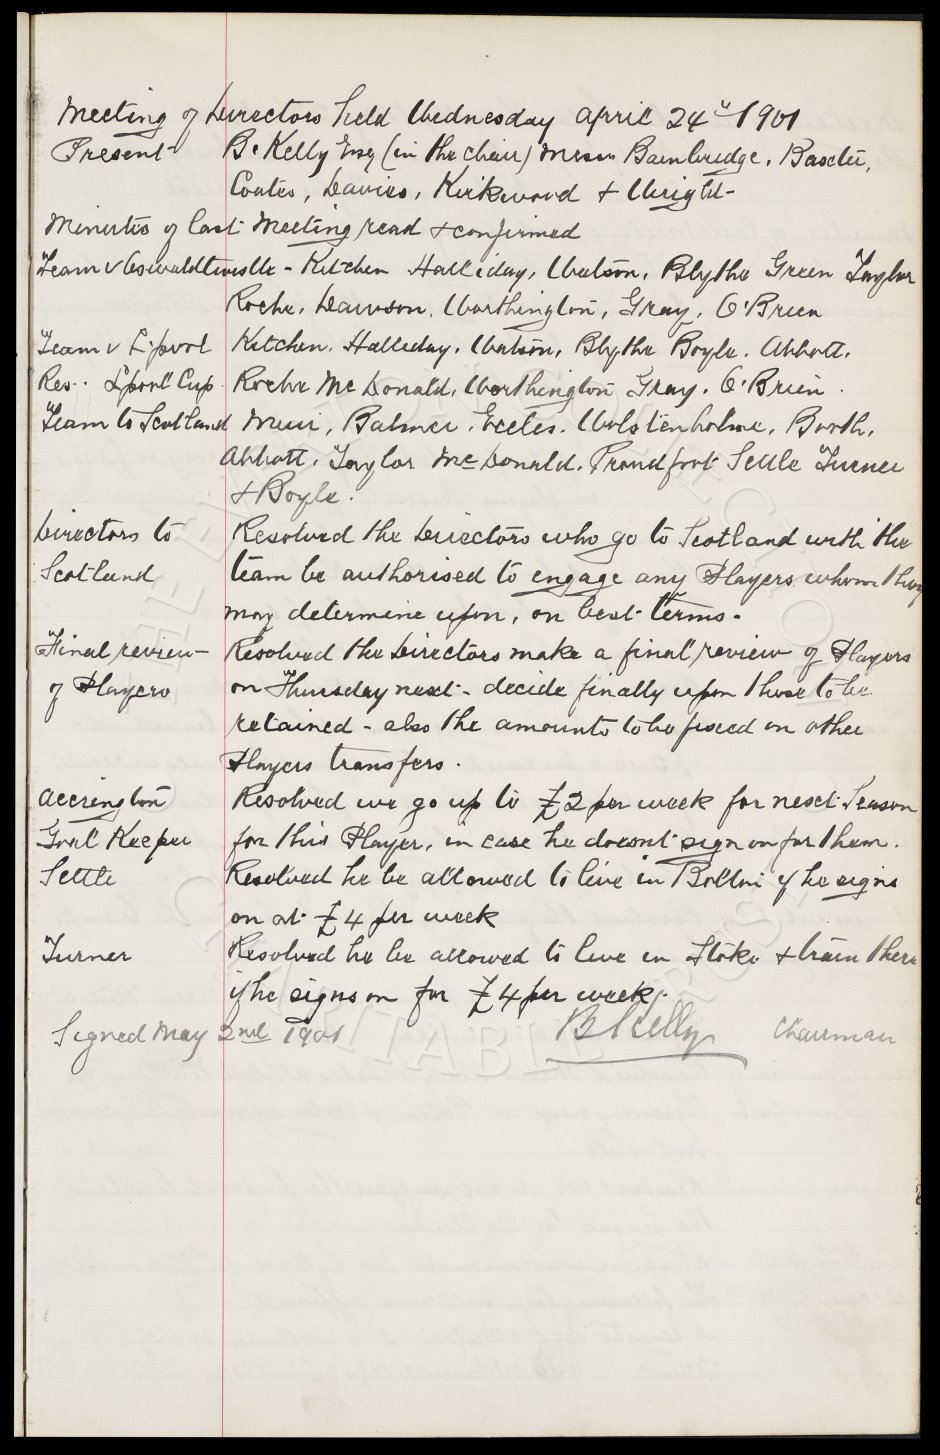 Meeting of Directors held Wednesday April 24" 1901
Present B. Kelly Esq (in the chair) Messrs Bainbridge, Baxter,
Coates, Davies, Kirkwood & Wright
Minutes of last Meeting read & confirmed
Team v Oswaldtwistle - Kitchen Halliday, Watson, Blythe Green Taylor
Roche, Dawson, Worthington, Gray, O'Brien
Team v L'pool Kitchen, Halliday, Watson, Blythe Boyle, Abbott,
Res. L'pool Cup Roche McDonald, Worthington Gray, O'Brien.
Team to Scotland Muir, Balmer, Eccles, Wolstenholme, Booth,
Abbott, Taylor McDonald, Proudfoot Settle Turner
& Boyle.
Directors to Resolved the Directors who go to Scotland with the
Scotland team be authorised to engage any Players whom they
may determine upon, on best terms.
Final review Resolved the Directors make a final review of Players
of Players on Thursday next - decide finally upon those to be
retained - also the amounts to be fixed on other
Players transfers.
Accrington Resolved we go up to £2 per week for next Season
Goal Keeper for this Player, in case he doesnt sign on for them.
Settle Resolved he be allowed to live in Bolton if he signs
on at £4 per week
Turner Resolved he be allowed to live in Stoke & train there
if he signs on for £4 per week.
Signed May 2nd 1901 B Kelly Chairman
THE EVERTON COLLECTION
CHARITABLE TRUST